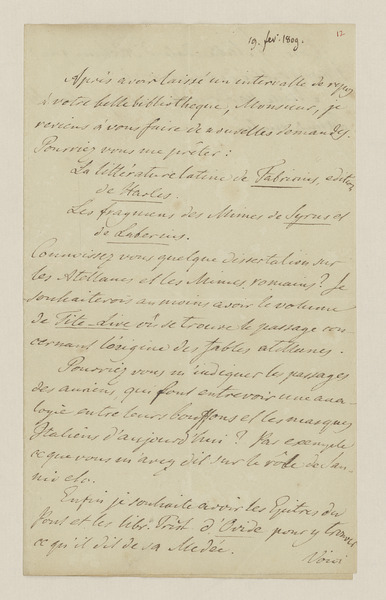 12
19. fev. 1809.
Après avoir laissé un intervalle de repos
à votre belle bibliotheque, Monsieur, je
reviens à vous faire de nouvelles demandes.
Pourriez vous me prêter:
La littérature latine de Fabricius, edition
de Harles
Les fragmens des Mimes de Syrus et
de Laberius.
Connoissez vous quelque dissertation sur
les Atellanes et les Mimes romains? Je
souhaiterois au moins avoir le volume
de Tite-Live où se trouve le passage con-
cernant l'origine des fables atellanes.
Pourriez vous m'indiquer les passages
des anciens qui font entrevoir une ana-
logie entre leurs bouffons et les masques
Italiens d'aujourd'hui? Par exemple
ce que vous m'avez dit sur le rôle de San-
nio etc.
Enfin je souhaite avoir les Epitres du
Pont et les libr. Trist. d'Ovide pour y trouver
ce qu'il dit de sa Medée.
Voici